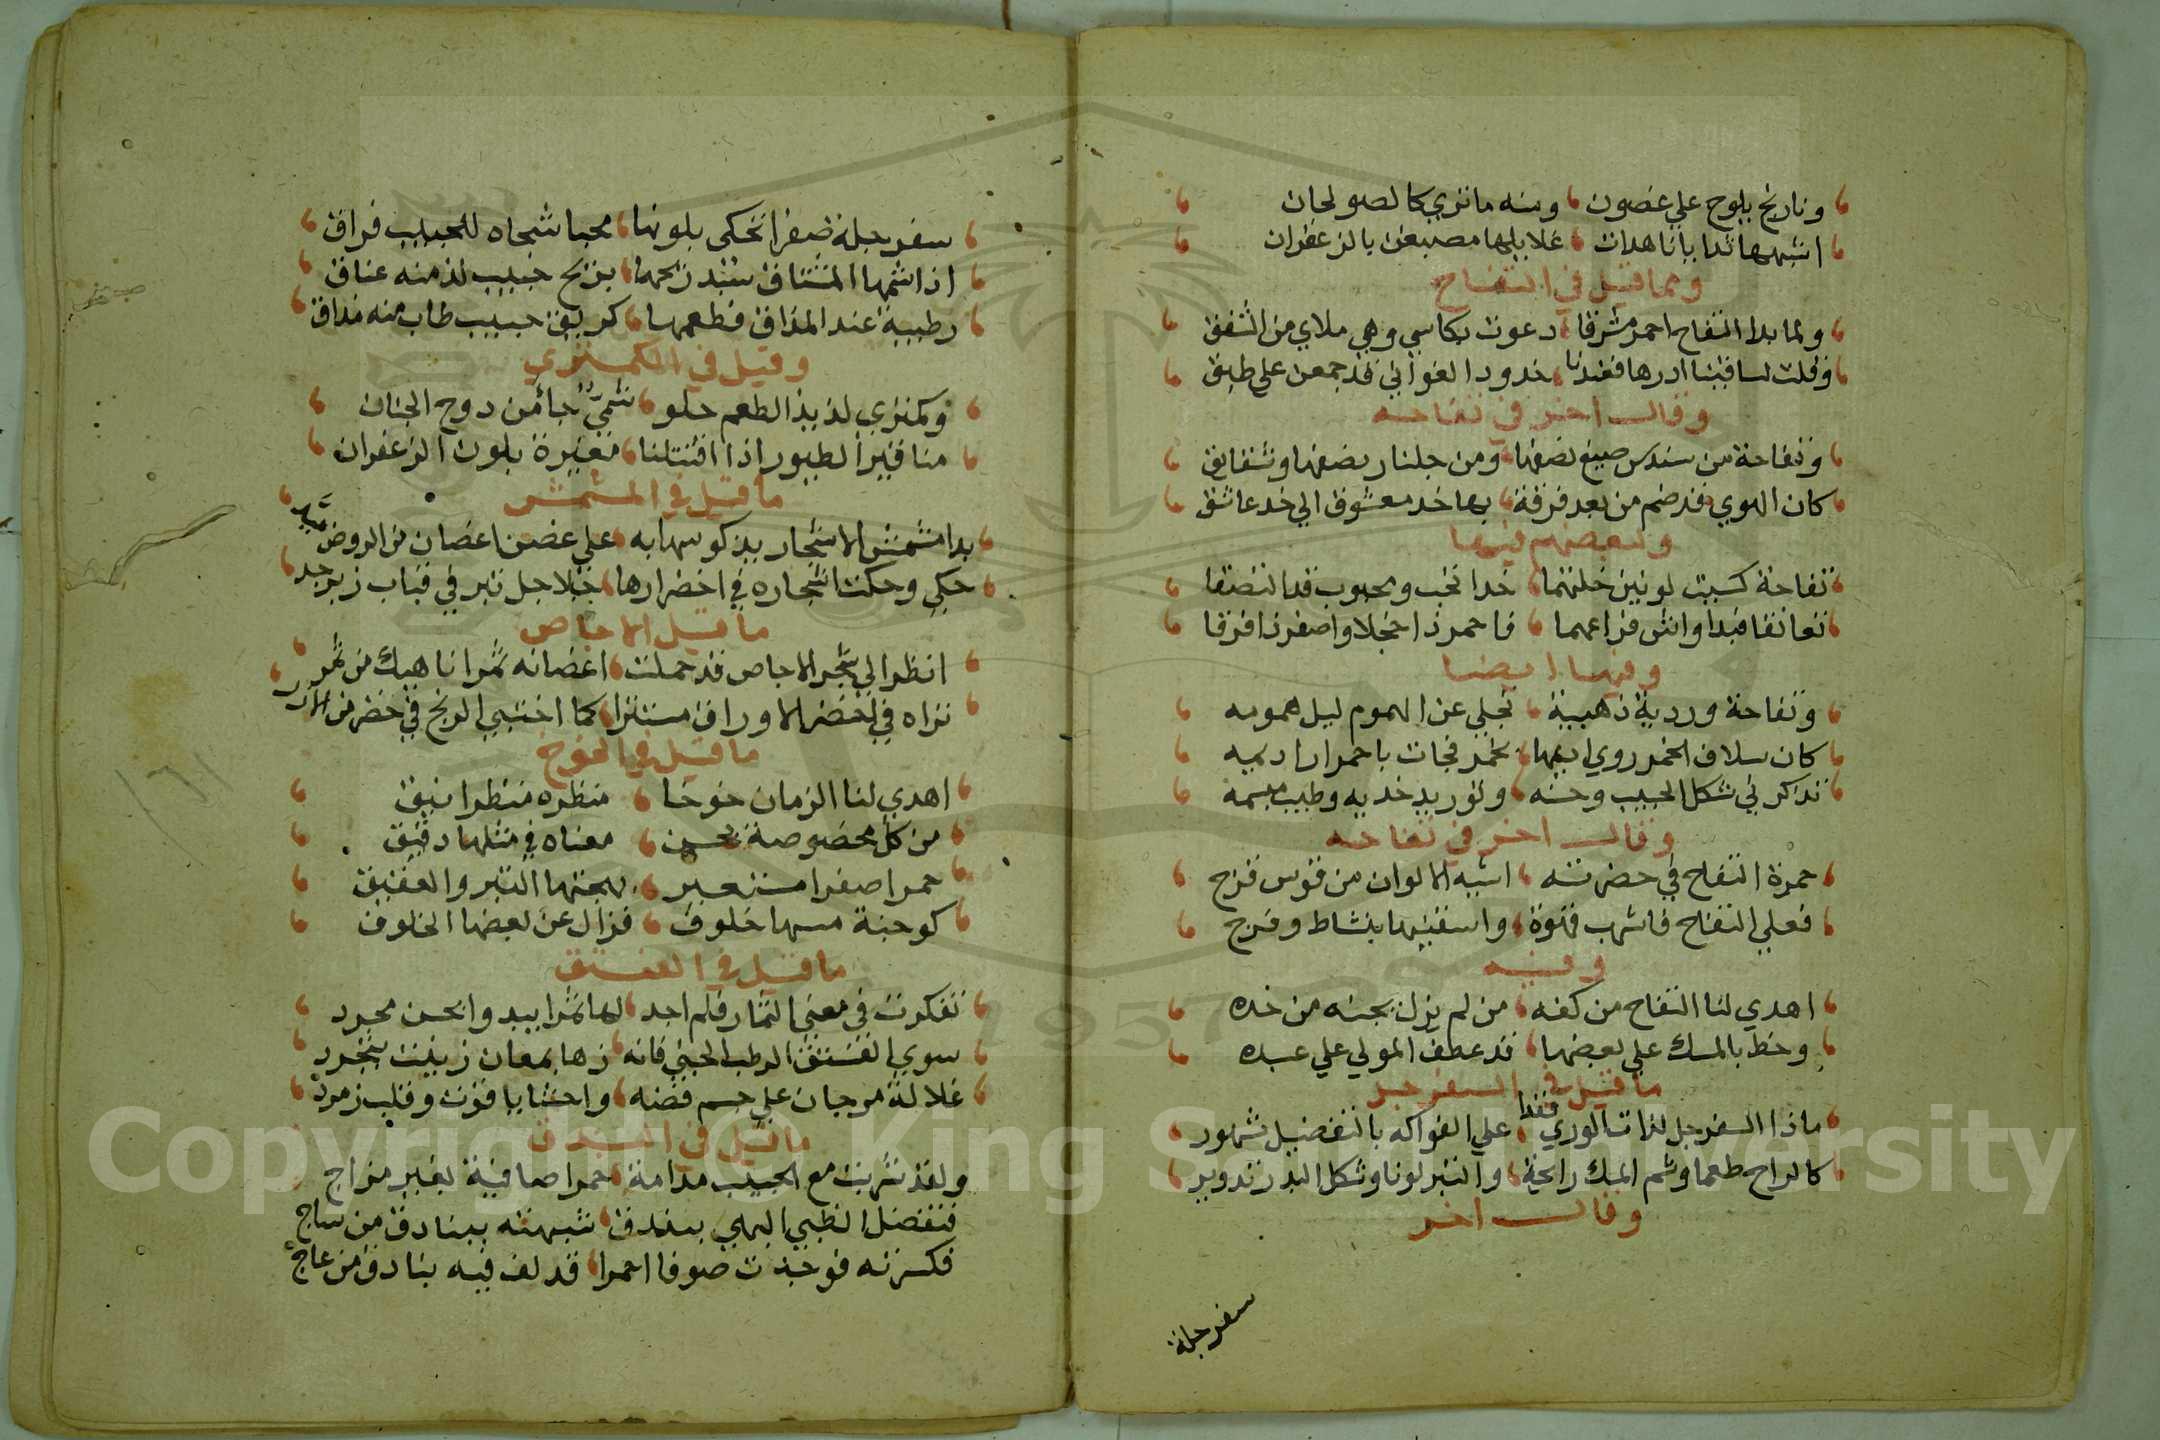 ونارنج يلوح علي غصون ومنه ما نري كالصولجان
اشبهها ثدايا ناهدات غلايلها مصبغن بالزعفران
ومما قيل في التفاح
ولما بدا التفاح احمر مشرقا دعوت بكاسي وهي ملاي من الشفق
وقلت لساقينا ادرها فعندنا خدود الغواني قد جمعن علي طبق
وقال اخر في تفاحه
وتفاحة من سندس صيغ نصفها ومن جلنار نصفها وشقايق
كان الهوي قد ضم من بعد فرقة بها خد معشوق الي خد عاشق
ولبعضهم فيها
تفاحة كسيت لونين خلتهما خدا محب ومحبوب قد التصقا
تعانقا فبدا واش فراعهما فاحمر ذا خجلا واصفر ذا فرقا
وفيها ايضا
وتفاحة وردية ذهبية تجلي عن الهموم ليل همومه
كان سلاف الخمر روي اديمها بخمر فجات باحمرار اديمه
تذكرني شكل الحبيب وحسنه وتوريد خديه وطيب مبسمه
وقال اخر في تفاحه
حمرة التفاح في خضرته اشبه الالوان من قوس قزح
فعلي التفاح فاشرب قهوة واسقنيها بنشاط وفرح
وفيه
اهدي لنا التفاح من كفه من لم يزل يجنيه من خده
وخط بالمسك علي بعضها قد عطف المولي علي عبده
ما قيل في السفرجل
ماذا السفرجل لذات الوري فغدا علي الفواكه بالتفضيل مشهور
كالراح طعما وشم المسك رايحة والتبر لونا وشكل البدر تدوير
وقال اخر
سفرجلة
سفرجلة صفرا تحكى بلونها محبا شجاه للحبيب فراق
اذا شمها المشتاق شبه ريحها بريح حبيب لذ منه عناق
وطيبة عند المذاق فطعمها كريق حبيب طاب منه مذاق
وقيل في الكمثري
وكمثري لذيذ الطعم حلو شهي جا من دوح الجنان
مناقير الطيور اذا اقتتلنا مغبرة بلون الزعفران
ما قيل في المشمش
بدا مشمش الاشجار يذكو شهابه علي غصن اغصان من الروض ميد
حكي وحكت اشجاره في اخضرارها جلاجل تبر في قباب زبرجد
ما قيل الاجاص
انظر الي شجر الاجاص قد حملت اغصانه ثمرا ناهيك من ثمر
تراه في اخضر الاوراق مستترا كما اختبي الزنج في خضر من الازر
ما قيل في الخوخ
اهدي لنا الزمان خوخا منظره منظر انيق
من كل مخصوصة بحسن معناه في مثلها دقيق
حمرا صفرا مستعير بهجتها التبر والعقيق
كوجنة مسها خلوق فزال عن بعضها الخلوق
ما قيل في الفستق
تفكرت في معني الثمار فلم اجد لها ثمرا يبدو بحسن مجرد
سوي الفستق الرطب الجني فانه زها بمعان زينت بتجرد
غلالة مرجان علي جسم فضه واحشا ياقوت وقلب زمرد
ما قيل في البندق
ولقد شربت مع الحبيب مدامة حمرا صافية بغير مزاج
فتفضل الظبي البهي ببندق شبهته ببنادق من ساج
فكسرته فوجدت صوفا احمرا قد لف فيه بنادق من عاج
Copyright © King Saud University
1957